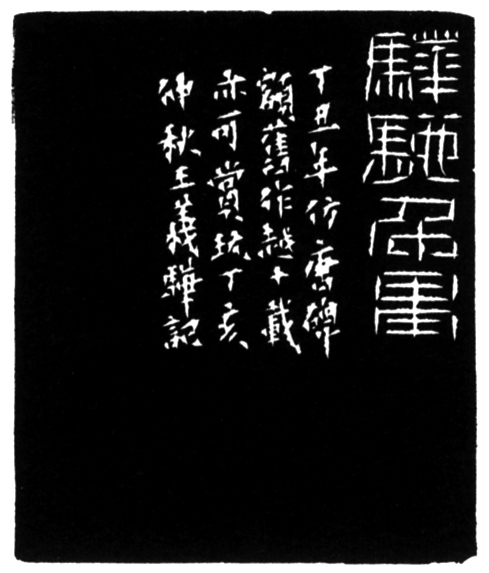 驊
丁丑年仿唐碑
額舊作越十載
亦可賞玩丁亥
仲秋王義驊記